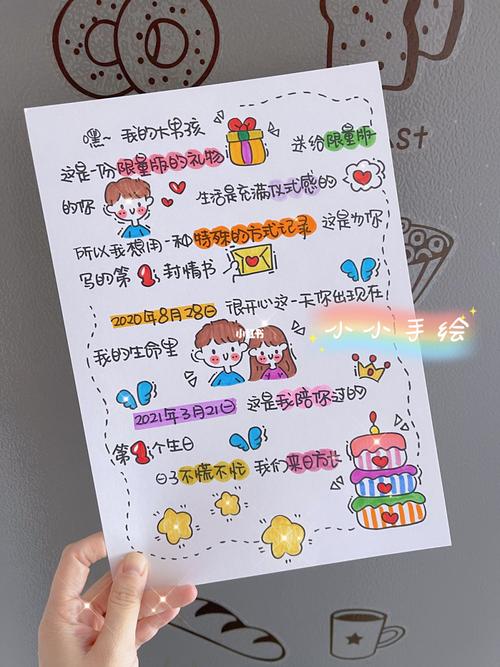 嘿~ 我的大男孩
这是一份限量版的礼物 送给限量版
的你 生活是充满仪式感的
所以我想用一种特殊的方式记录 这是为你
写的第1封情书
2020年8月28日 很开心这一天你出现在
我的生命里
2021年3月21日 这是我陪你过的
第1个生日
日子不慌不忙 我们来日方长
小小手绘
小红书
st